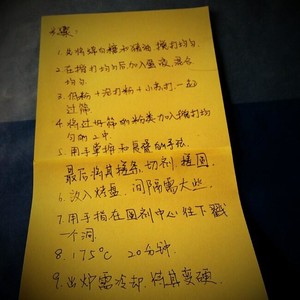 步骤:
1. 先将绵白糖和猪油 搅打均匀.
2. 在搅打均匀后,加入蛋液,混合
均匀.
3. 低粉+泡打粉+小苏打.一起
过筛
4. 将过好筛的粉类加入搅打均
匀的2中.
5. 用手掌揉和
最后将其搓条,切剂.搓圆
6. 放入烤盘.间隔需大些.
7. 用手指在圆剂中心往下戳
一个洞.
8. 175℃ 20分钟
9. 出炉需冷却.待其变硬.